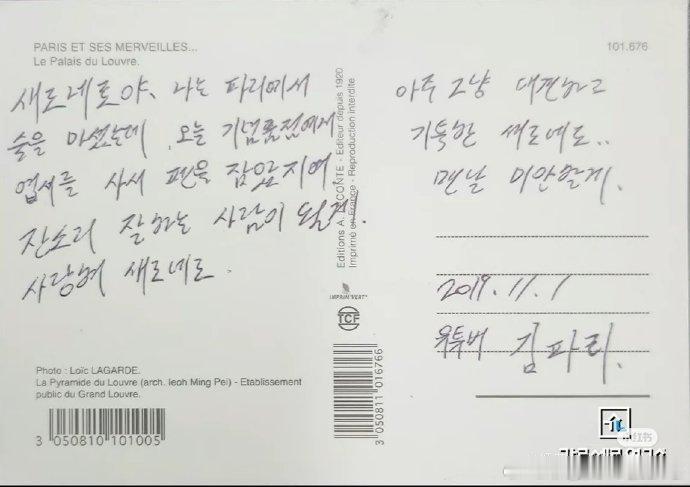 PARIS ET SES MERVEILLES...
Le Palais du Louvre.
101.676
새로네로야. 나는 파리에서
술을 마셨는데. 오늘 기념품점에서
엽서를 사서 펜을 잡았지여.
잔소리 잘하는 사람이 될게.
사랑혀 새로네로.
아주 그냥 대견하고
기특한 새로네로..
맨날 미안할게.
2019.11.1
유투버 김파리.
Editions A. LECONTE - Editeur depuis 1920
Imprimé en France - Reproduction interdite
IMPRIM'VERT
TCF
3 050811 016766
Photo : Loïc LAGARDE.
La Pyramide du Louvre (arch. Ieoh Ming Pei) - Etablissement
public du Grand Louvre.
3 050810 101005
小红书